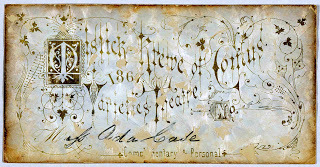 Mistick Krewe of Comus
1867
Varieties Theatre
No.
Miss Ada
Complimentary & Personal